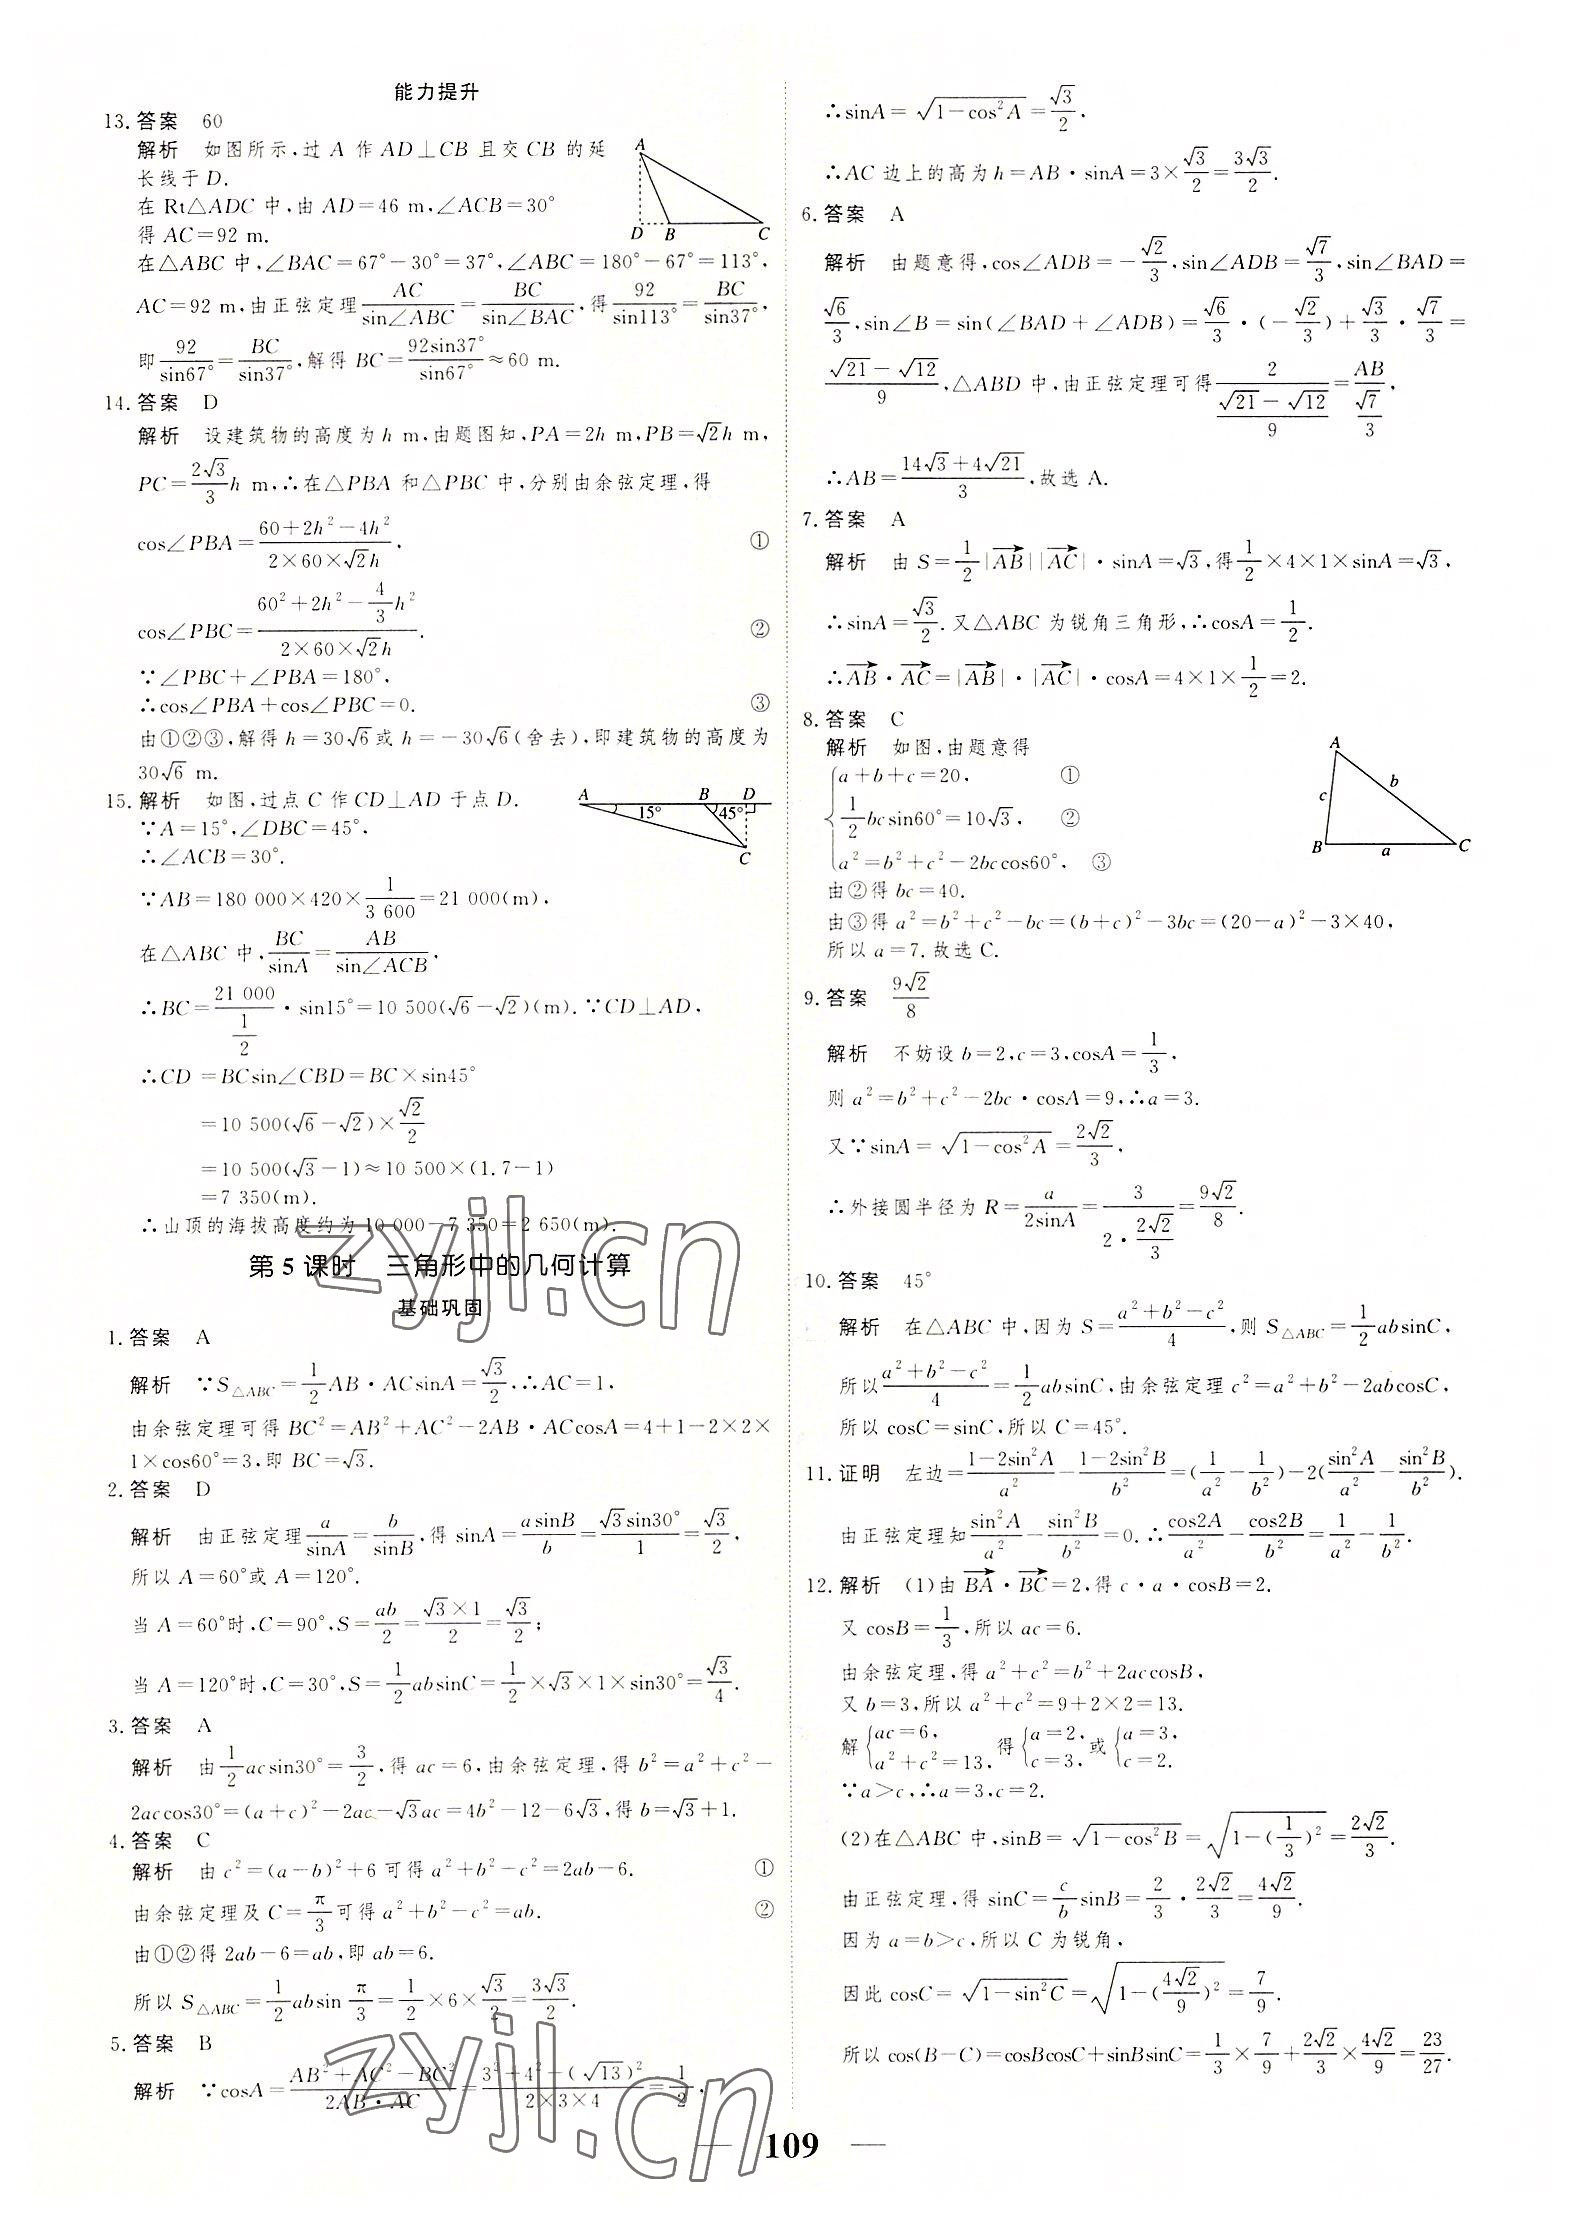 能力提升
13.答案 60
解析 如图所示,过 A 作 AD⊥CB 且交 CB 的延
长线于 D.
在 Rt△ADC 中,由 AD=46 m,∠ACB=30°
得 AC=92 m.
A
D B C
在△ABC 中,∠BAC=67°-30°=37°,∠ABC=180°-67°=113°,
AC=92 m,由正弦定理 AC/sin∠ABC=BC/sin∠BAC,得 92/sin113°=BC/sin37°,
即 92/sin67°=BC/sin37°,解得 BC=92sin37°/sin67°≈60 m.
14.答案 D
解析 设建筑物的高度为 h m,由题图知,PA=2h m,PB=√2h m,
PC=2√3/3 h m,∴在△PBA 和△PBC 中,分别由余弦定理,得
cos∠PBA=(60+2h²-4h²)/(2×60×√2h), ①
cos∠PBC=(60²+2h²-4/3h²)/(2×60×√2h). ②
∵∠PBC+∠PBA=180°,
∴cos∠PBA+cos∠PBC=0. ③
由①②③,解得 h=30√6或 h=-30√6(舍去),即建筑物的高度为
30√6 m.
15.解析 如图,过点 C 作CD⊥AD 于点 D.
∵A=15°,∠DBC=45°,
∴∠ACB=30°.
A B D
15° 45°
C
∵AB=180 000×420×1/3 600=21 000(m),
在△ABC 中,BC/sinA=AB/sin∠ACB,
∴BC=21 000/(1/2)·sin15°=10 500(√6-√2)(m).∵CD⊥AD,
∴CD =BCsin∠CBD=BC×sin45°
=10 500(√6-√2)×√2/2
=10 500(√3-1)≈10 500×(1.7-1)
=7 350(m).
∴山顶的海拔高度约为 10 000-7 350=2 650(m).
第 5 课时 三角形中的几何计算
基础巩固
1.答案 A
解析 ∵S△ABC=1/2AB·ACsinA=√3/2,∴AC=1,
由余弦定理可得 BC²=AB²+AC²-2AB·ACcosA=4+1-2×2×
1×cos60°=3,即 BC=√3.
2.答案 D
解析 由正弦定理 a/sinA=b/sinB,得 sinA=asinB/b=√3sin30°/1=√3/2,
所以 A=60°或 A=120°.
当 A=60°时,C=90°,S=ab/2=√3×1/2=√3/2;
当 A=120°时,C=30°,S=1/2absinC=1/2×√3×1×sin30°=√3/4.
3.答案 A
解析 由1/2acsin30°=3/2,得 ac=6,由余弦定理,得 b²=a²+c²-
2accos30°=(a+c)²-2ac-√3ac=4b²-12-6√3,得 b=√3+1.
4.答案 C
解析 由 c²=(a-b)²+6 可得 a²+b²-c²=2ab-6. ①
由余弦定理及 C=π/3可得 a²+b²-c²=ab. ②
由①②得 2ab-6=ab,即 ab=6.
所以 S△ABC=1/2absin π/3=1/2×6×√3/2=3√3/2.
5.答案 B
解析 ∵cosA=(AB²+AC²-BC²)/(2AB·AC)=(3²+4²-(√13)²)/(2×3×4)=1/2,
∴sinA=√(1-cos²A)=√3/2,
∴AC 边上的高为 h=AB·sinA=3×√3/2=3√3/2.
6.答案 A
解析 由题意得,cos∠ADB=-√2/3,sin∠ADB=√7/3,sin∠BAD=
√6/3,sin∠B=sin(∠BAD+∠ADB)=√6/3·(-√2/3)+√3/3·√7/3=
(√21-√12)/9,△ABD 中,由正弦定理可得 2/((√21-√12)/9)=AB/(√7/3),
∴AB=(14√3+4√21)/3,故选 A.
7.答案 A
解析 由 S=1/2|AB→||AC→|·sinA=√3,得1/2×4×1×sinA=√3,
∴sinA=√3/2.又△ABC 为锐角三角形,∴cosA=1/2.
∴AB→·AC→=|AB→|·|AC→|·cosA=4×1×1/2=2.
8.答案 C
解析 如图,由题意得
a+b+c=20, ①
1/2bcsin60°=10√3, ②
a²=b²+c²-2bccos60°, ③
A
c b
B a C
由②得 bc=40.
由③得 a²=b²+c²-bc=(b+c)²-3bc=(20-a)²-3×40,
所以 a=7.故选 C.
9.答案 9√2/8
解析 不妨设 b=2,c=3,cosA=1/3,
则 a²=b²+c²-2bc·cosA=9,∴a=3.
又∵sinA=√(1-cos²A)=2√2/3,
∴外接圆半径为 R=a/2sinA=3/(2·2√2/3)=9√2/8.
10.答案 45°
解析 在△ABC 中,因为 S=(a²+b²-c²)/4,则 S△ABC=1/2absinC,
所以(a²+b²-c²)/4=1/2absinC,由余弦定理 c²=a²+b²-2abcosC,
所以 cosC=sinC,所以 C=45°.
11.证明 左边=(1-2sin²A)/a²-(1-2sin²B)/b²=(1/a²-1/b²)-2(sin²A/a²-sin²B/b²).
由正弦定理知sin²A/a²-sin²B/b²=0.∴cos2A/a²-cos2B/b²=1/a²-1/b².
12.解析 (1)由 BA→·BC→=2,得 c·a·cosB=2.
又 cosB=1/3,所以 ac=6.
由余弦定理,得 a²+c²=b²+2accosB,
又 b=3,所以 a²+c²=9+2×2=13.
解{ac=6, a²+c²=13, 得{a=2, c=3, 或{a=3, c=2.
∵a>c,∴a=3,c=2.
(2)在△ABC 中,sinB=√(1-cos²B)=√(1-(1/3)²)=2√2/3.
由正弦定理,得 sinC=c/b sinB=2/3·2√2/3=4√2/9.
因为 a=b>c,所以 C 为锐角,
因此 cosC=√(1-sin²C)=√(1-(4√2/9)²)=7/9.
所以 cos(B-C)=cosBcosC+sinBsinC=1/3×7/9+2√2/3×4√2/9=23/27.
109
zyjl.cn
zyjl.cn